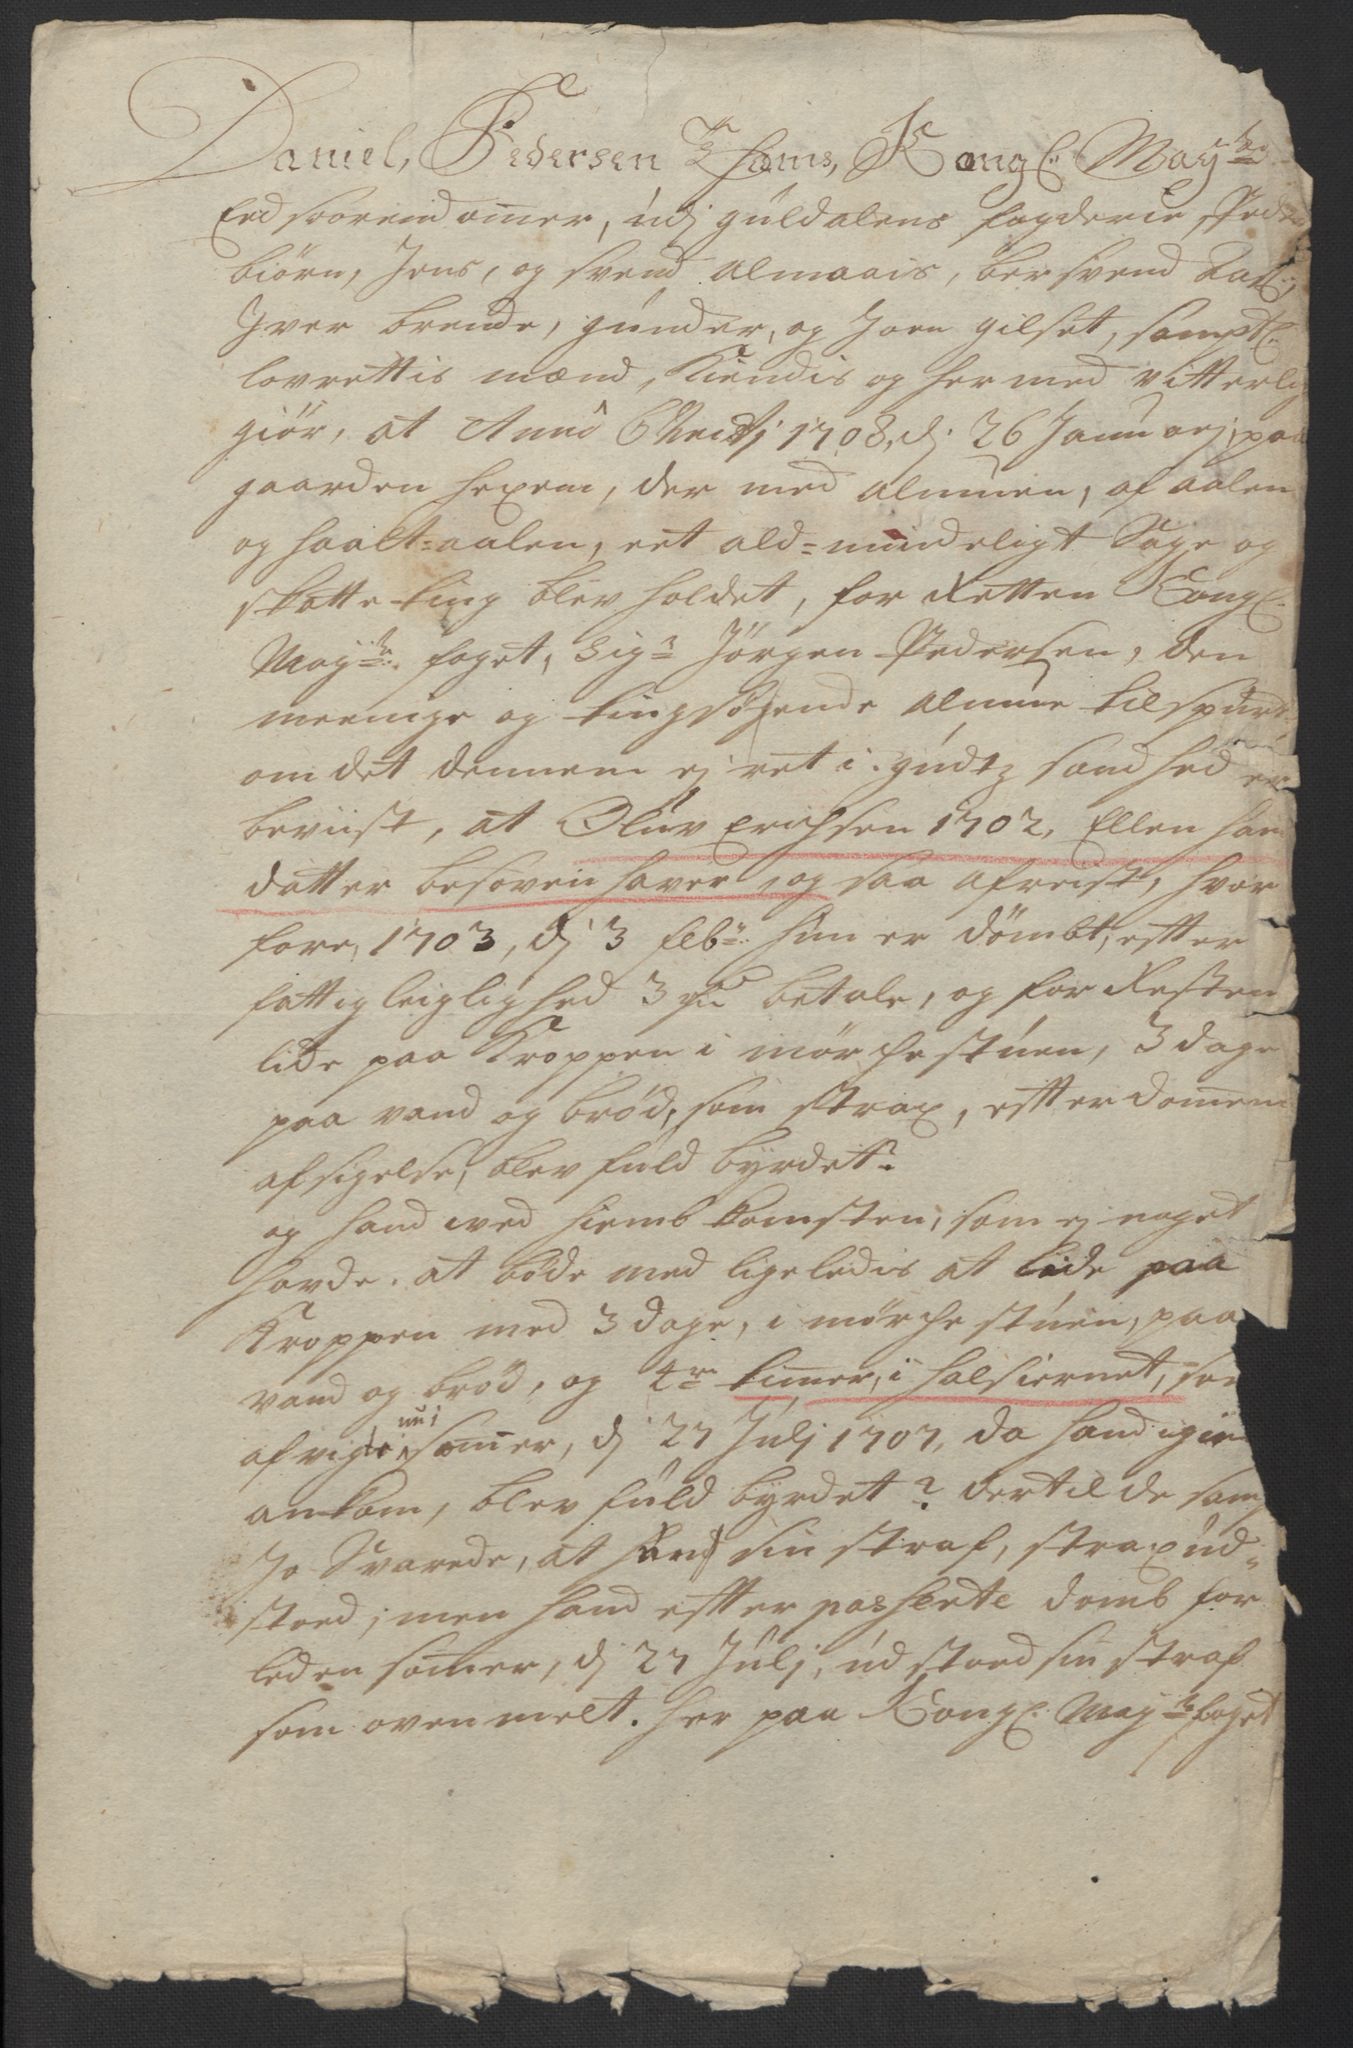 Daniel, Pedersen Thoms, Kongl. Mayts
Eed soorendomer, udj guldalens fogderie,
biörn, Jens, og svend almaais, bersvend
Iver brende, gunder, og Joen gilset, sampt
lovrettis mænd, Kiendis og her med vitterlig
giör, at Anno Christj 1708, dj. 26 Januarj, paa
gaarden hexem, der med almuen, af aalen
og haalt=aalen, eet ald=mindeligt Sage og
skatte ting blev holdet, for Retten Kongl.
Mayts. foget, Sigr Jörgen Pedersen, den
meenige og tingsögende almue tilspurt
om det dennem ej ret i gudz sandhed er
beviist, at Oluv Erichsen 1702, Ellen hans
datter besoven haver, og saa afreist, hvor
fore, 1703, dj 3 febr. hun er dömbt, efter
fattig leiglighed 3 betale, og for Resten
lide paa Kroppen i mörche stuen, 3 dage
paa vand og bröd, som strax, efter domens
afsigelse, blev fuld byrdet?
og hand ved hiemb komsten, som ej noget
havde. at böde med ligeledis at lide paa
Kroppen med 3 dage, i mörche stuen, paa
vand og bröd, og 4re timer, i halsiernet, som
afvigte nu i somer, dj 27 Julj 1707, da hand igien
ankom, blev fuld byrdet? dertil de samptl
Jo Svarede, at hun sin straf, strax ud=
stoed, men hand efter passerte domb for
leden somer, dj 27 Julj, udstoed sin straf
som ovenmelt. her paa Kongl. Mayts foget